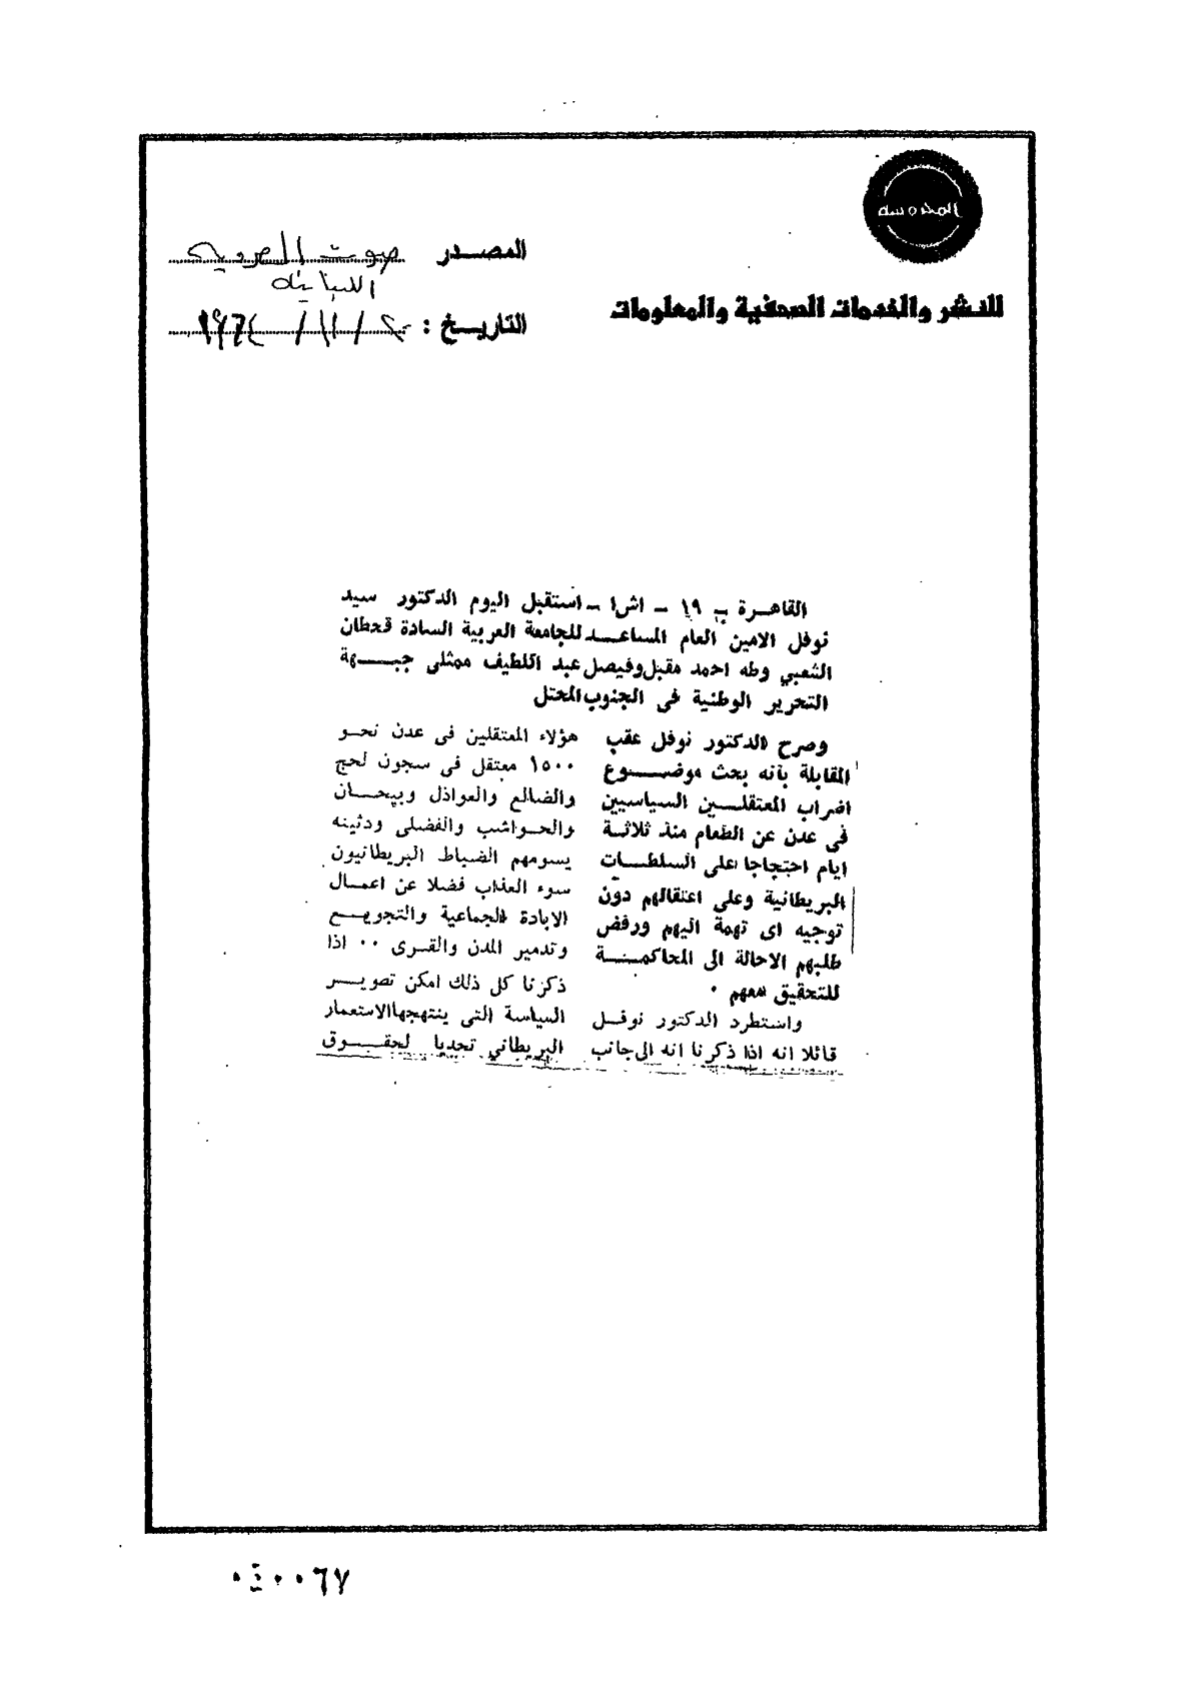 المحروسة
للنشر والخدمات الصحفية والمعلومات
المصدر صوت العروبة
اللبنانية
التاريخ : ٢٠ / ١١ / ١٩٦٤
القاهرة ب ١٩ - اشا - استقبل اليوم الدكتور سيد
نوفل الامين العام المساعد للجامعة العربية السادة قحطان
الشعبي وطه احمد مقبل وفيصل عبد اللطيف ممثلى جبهة
التحرير الوطنية فى الجنوب المحتل
وصرح الدكتور نوفل عقب
المقابلة بأنه بحث موضوع
اضراب المعتقلين السياسيين
فى عدن عن الطعام منذ ثلاثة
ايام احتجاجا على السلطات
البريطانية وعلى اعتقالهم دون
توجيه اى تهمة اليهم ورفض
طلبهم الاحالة الى المحاكمة
للتحقيق معهم .
واستطرد الدكتور نوفل
قائلا انه اذا ذكرنا انه الى جانب
هؤلاء المعتقلين فى عدن نحو
١٥٠٠ معتقل فى سجون لحج
والضالع والعواذل وبيحان
والحواشب والفضلى ودثينه
يسومهم الضباط البريطانيون
سوء العذاب فضلا عن اعمال
الابادة الجماعية والتجويع
وتدمير المدن والقرى .. اذا
ذكرنا كل ذلك امكن تصوير
السياسة التى ينتهجها الاستعمار
البريطاني تحديا لحقوق